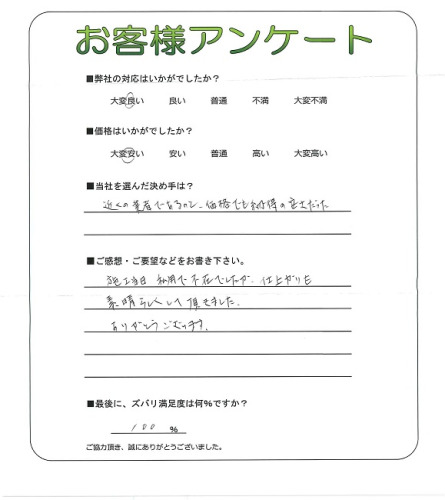 お客様アンケート
■弊社の対応はいかがでしたか？
大変良い 良い 普通 不満 大変不満
■価格はいかがでしたか？
大変安い 安い 普通 高い 大変高い
■当社を選んだ決め手は？
近くの業者であるので、価格でも納得の安さだった
■ご感想・ご要望などをお書き下さい。
施工当日 私用で不在でしたが、仕上がりも
素晴らしくして頂きました。
ありがとうございます。
■最後に、ズバリ満足度は何%ですか？
100 %
ご協力頂き、誠にありがとうございました。